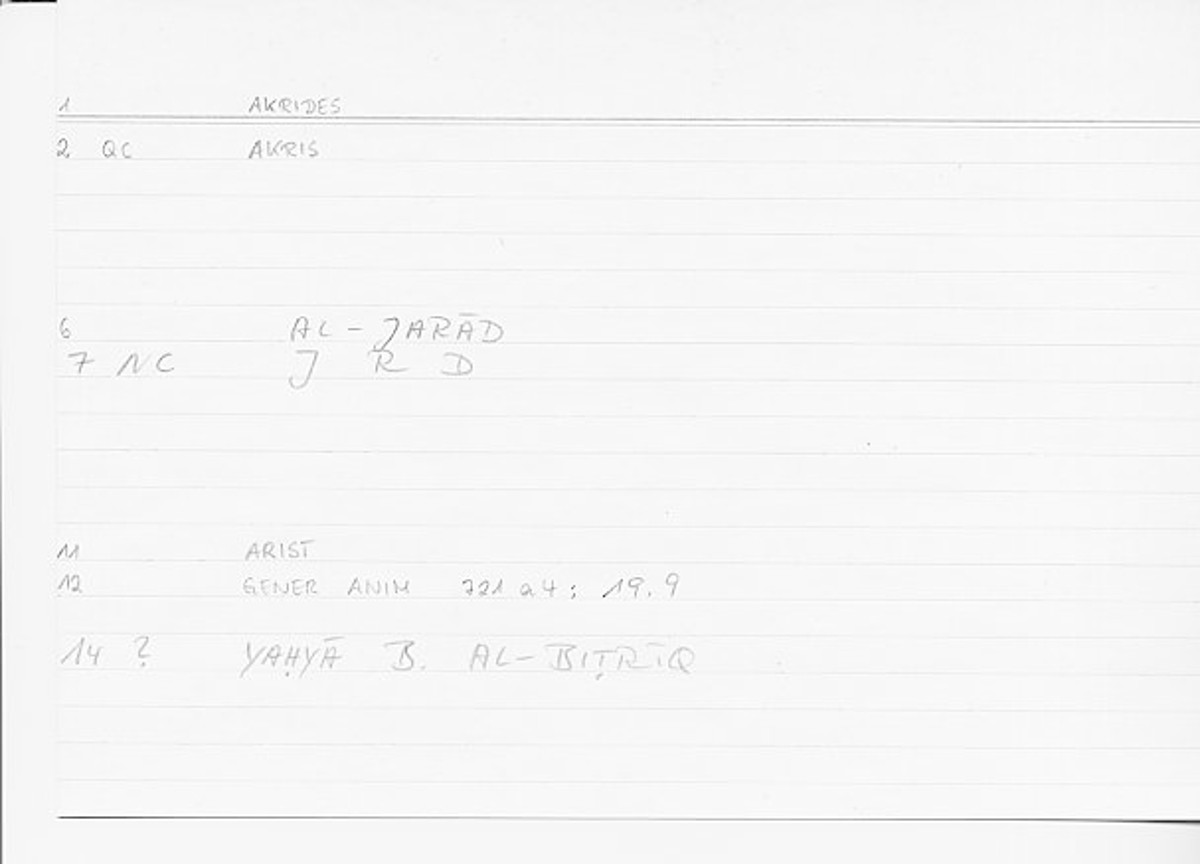 1 AKRIDES
2 QC AKRIS
6 AL-JARĀD
7 NC J R D
11 ARIST
12 GENER ANIM 721 a 4; 19.9
14 ? YAḤYĀ B. AL-BIṬRĪQ